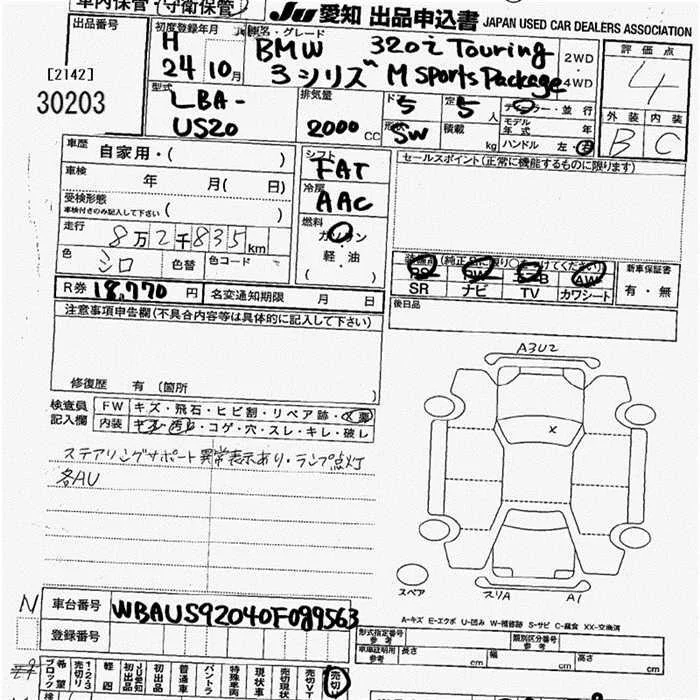 車内保管・守衛保管
JU 愛知 出品申込書 JAPAN USED CAR DEALERS ASSOCIATION
出品番号
[2142]
30203
初度登録年月
H
24年 10月
車名・グレード
BMW 320i Touring
3シリーズ M Sports Package
2WD
・
4WD
評価点
4
外装 内装
B C
型式
LBA-
US20
排気量
2000 CC
ドア
5
形状
SW
定員
5 人
積載
kg
ディーラー・並行
モデル年式 年
ハンドル 左・右
車歴
自家用・( )
車検
年 月( 日)
受検形態
車検付きのみ記入して下さい ( )
走行
8万2千835km
色
シロ
色替
色コード
シフト
FAT
冷房
AAC
燃料
ガソリン
軽・油
( ・ )
セールスポイント(正常に機能するものに限ります)
装備品(純正品に限り○をつけてください)
PS PW エアB AW
SR ナビ TV カワシート
新車保証書
有・無
後日品
R券 18,770 円
名変通知期限 月 日
注意事項申告欄(不具合内容等は具体的に記入して下さい)
修復歴 有 (箇所 )
検査員
記入欄
FW キズ・飛石・ヒビ割・リペア跡・X要
内装 キズ・汚れ・コゲ・穴・スレ・キレ・破レ
ステアリングサポート異常表示あり・ランプ点灯
各AU
A3U2
X
スペア
スリA
A1
A-キズ E-エクボ U-凹み W-補修跡 S-サビ C-腐食 XX-交換済
N
車台番号 WBAUS92040F089563
登録番号
形式指定番号
参考
類別区分番号
参考
車庫証明用
参考
長さ cm
幅 cm
高さ cm
希望
ブロック
1・2・3
売切り
軽四
JU愛知
初出品
初出品
普通車
バントラ
特殊車両
現状車
売切現状
売切VT
売切